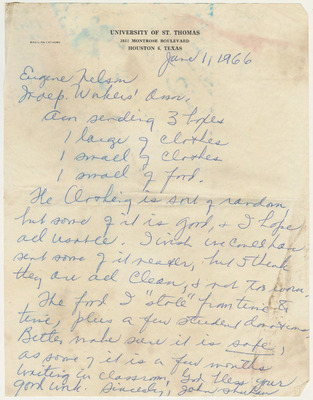 UNIVERSITY OF ST. THOMAS
3812 MONTROSE BOULEVARD
HOUSTON 6, TEXAS
June 1, 1966
Eugene Nelson
Indep. Workers' Assn.
Am sending 3 boxes
1 large of clothes
1 small of clothes
1 small of food.
The Clothing is sort of random
but some of it is good, & I hope
all usable. I wish we could have
sent some of it nearer, but I think
they are all clean, & not too worn.
The food I "stole" from time to
time, plus a few student donations
Better make sure it is safe,
as some of it is a few months
waiting in classroom. God bless your
good work. Sincerely, John